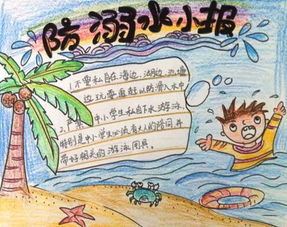 防溺水小报
1.不要私自在海边、湖边、池塘
边玩耍追赶以防滑入水中
2.中小学生私自下水游泳,
特别是中小学生必须有大人的陪同并
带好相关的游泳用具。